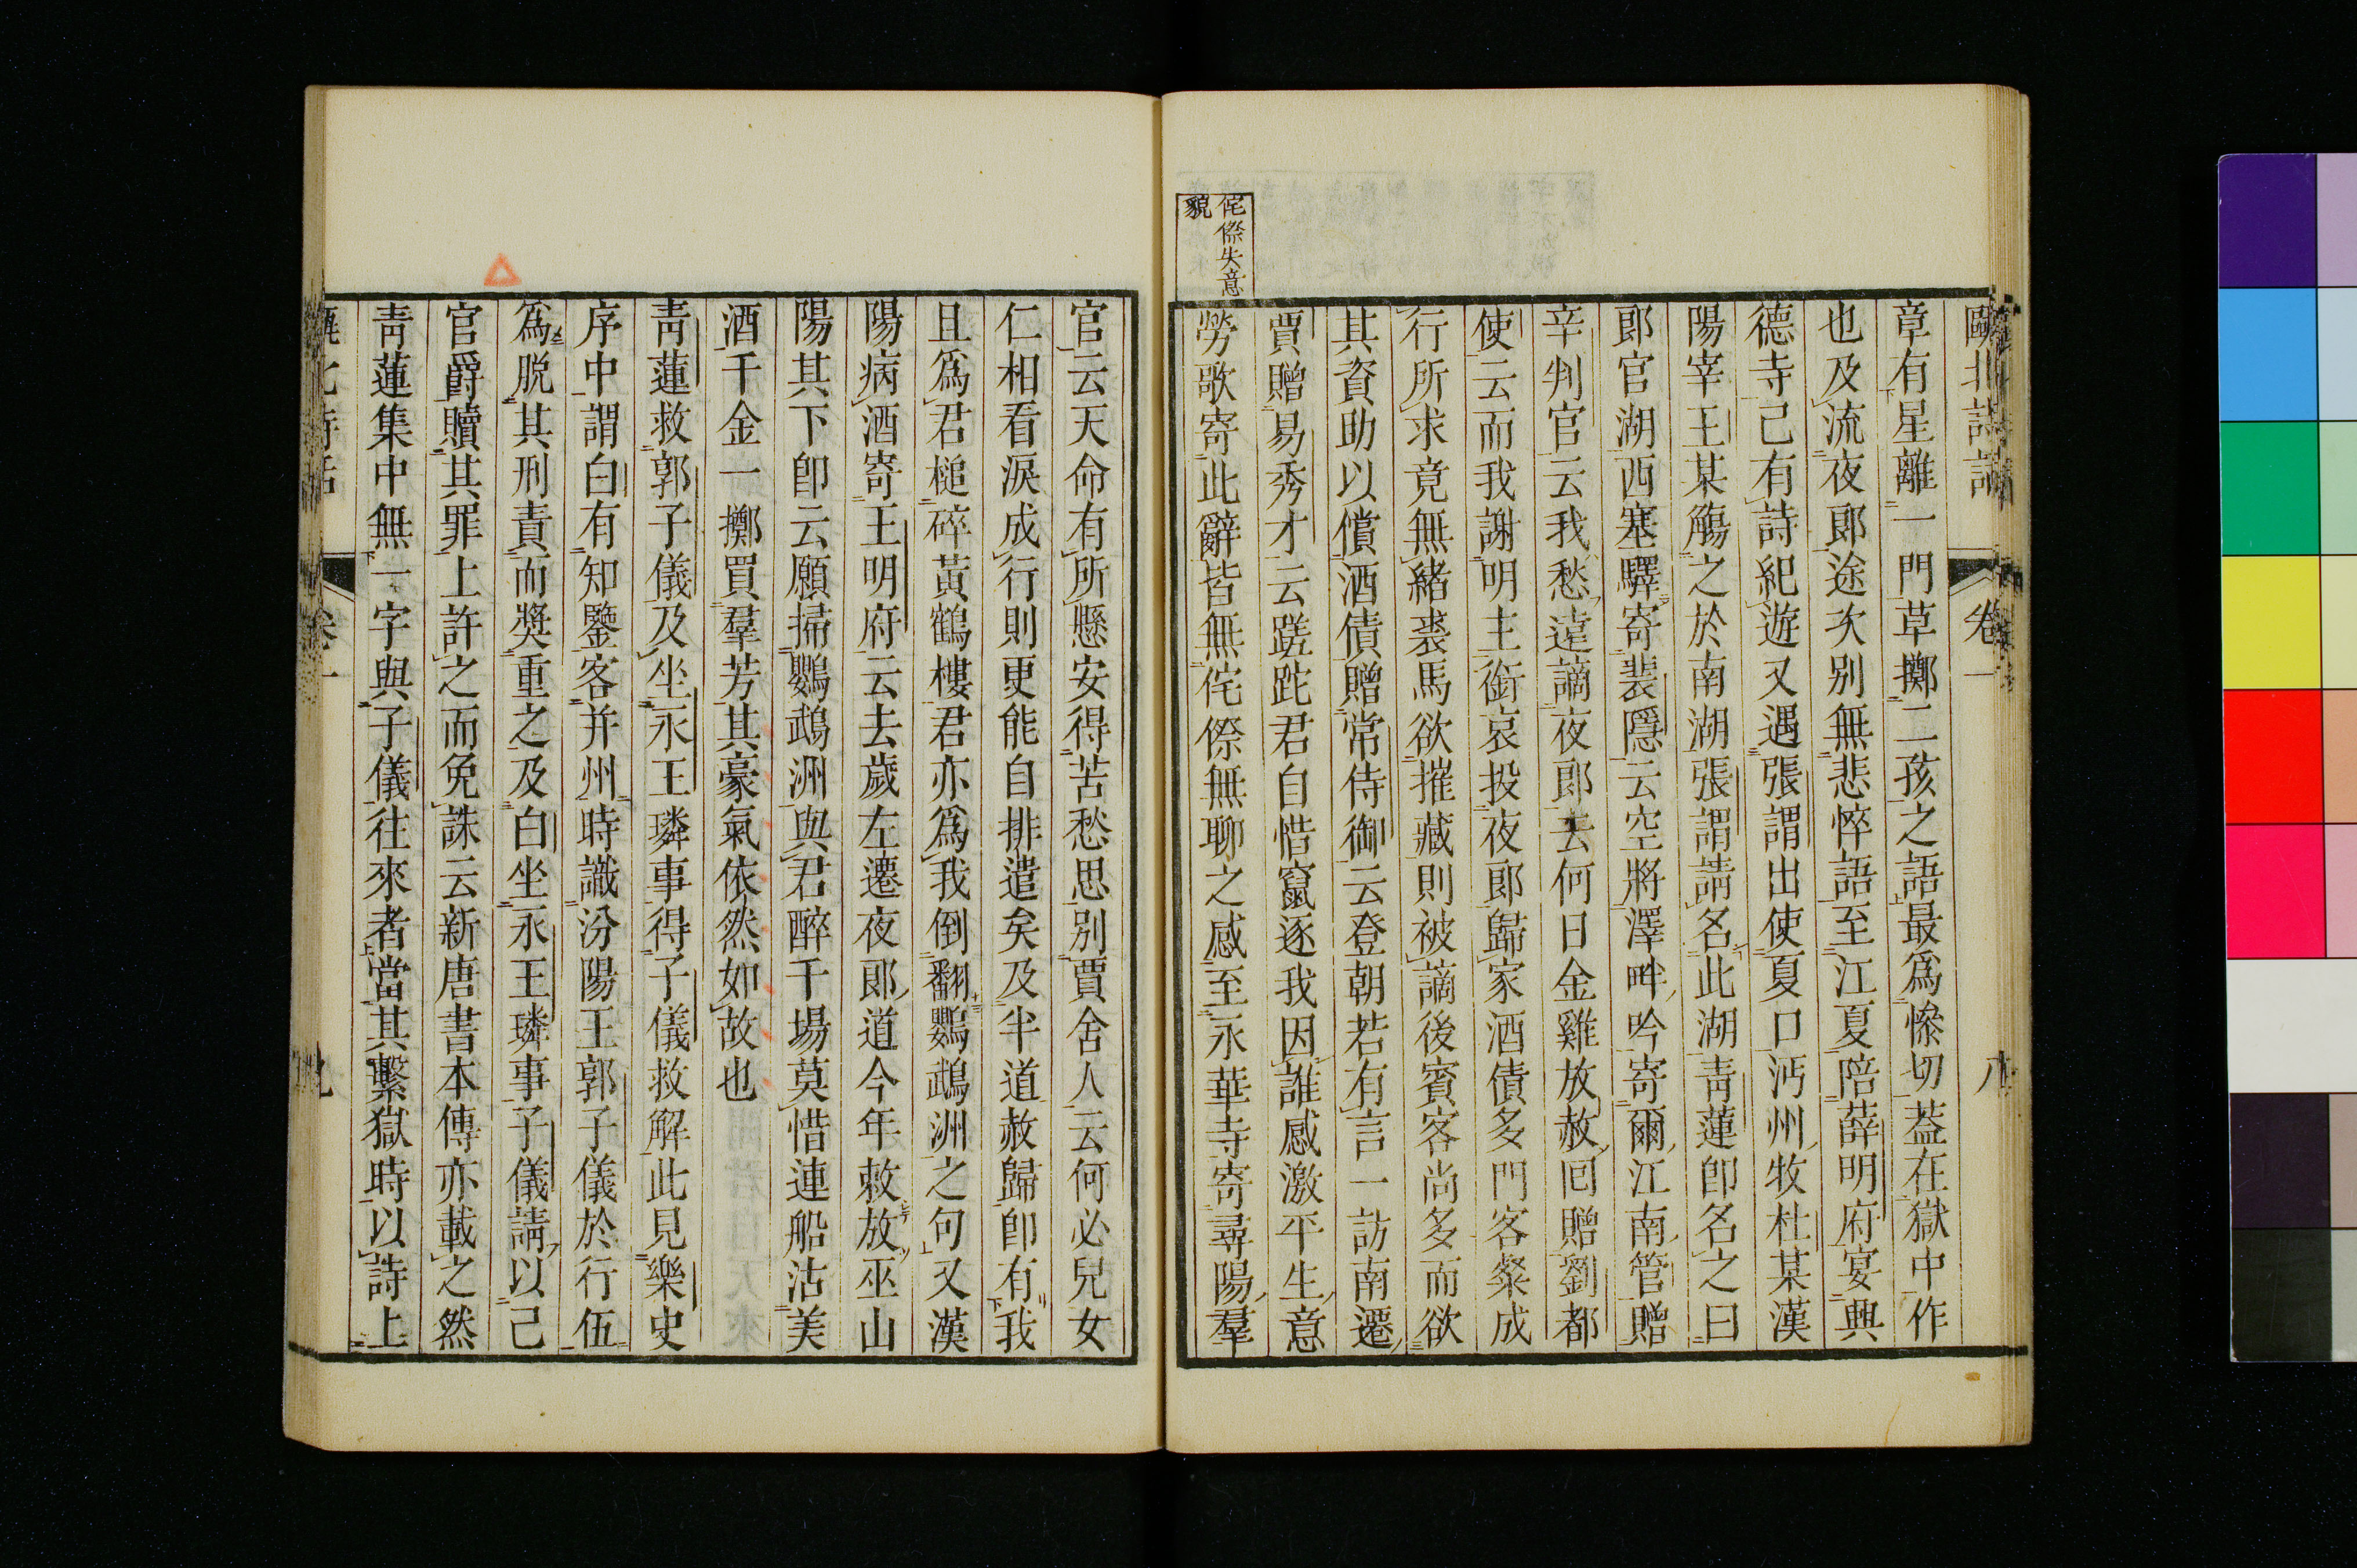 甌北詩話 卷一 八
章有星離一門草擲二孩之語最爲慘切蓋在獄中作
也及流夜郎途次別無悲悴語至江夏陪薛明府宴興
德寺己有詩紀遊又遇張謂出使夏口沔州牧杜某漢
陽宰王某觴之於南湖張謂請名此湖靑蓮卽名之曰
郎官湖西塞驛寄裴隱云空將澤畔吟寄爾江南管贈
辛判官云我愁遠謫夜郎去何日金雞放赦回贈劉都
使云而我謝明主銜哀投夜郎歸家酒債多門客粲成
行所求竟無緒裘馬欲摧藏則被謫後賓客尚多而欲
其資助以償酒債贈常侍御云登朝若有言一訪南遷
賈贈易秀才云蹉跎君自惜竄逐我因誰感激平生意
勞歌寄此辭皆無侘傺無聊之感至永華寺寄尋陽羣
侘傺失意
貌
官云天命有所懸安得苦愁思別賈舍人云何必兒女
仁相看淚成行則更能自排遣矣及半道赦歸卽有我
且爲君槌碎黃鶴樓君亦爲我倒翻鸚鵡洲之句又漢
陽病酒寄王明府云去歲左遷夜郎道今年敕放巫山
陽其下卽云願掃鸚鵡洲與君醉千場莫惜連船沽美
酒千金一擲買羣芳其豪氣依然如故也
靑蓮救郭子儀及坐永王璘事得子儀救解此見樂史
序中謂白有知鑒客并州時識汾陽王郭子儀於行伍
爲脫其刑責而獎重之及白坐永王璘事子儀請以己
官爵贖其罪上許之而免誅云新唐書本傳亦載之然
靑蓮集中無一字與子儀往來者當其繫獄時以詩上
北詩話 卷一 九